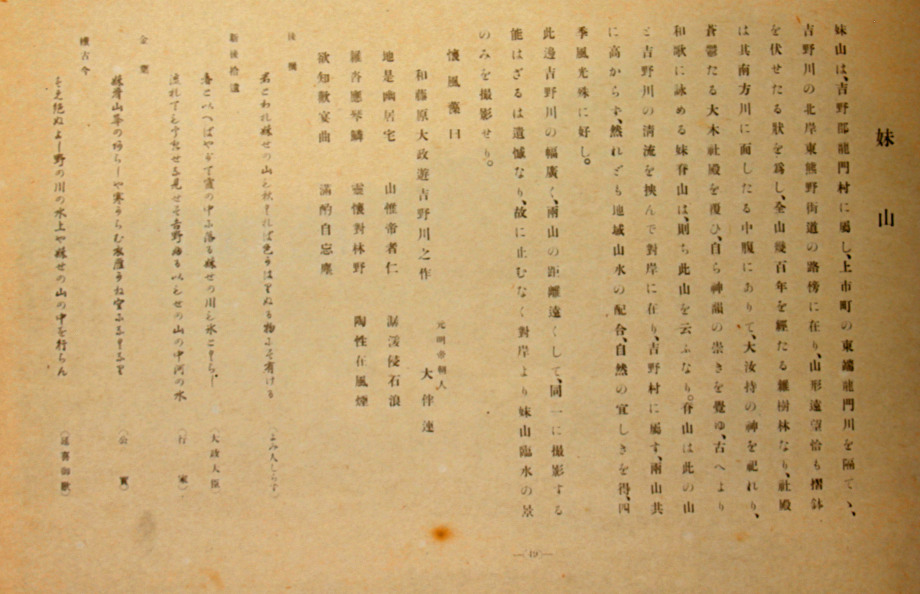 妹山
妹山は、吉野郡龍門村に屬し、上市町の東端龍門川を隔てゝ、
吉野川の北岸東熊野街道の路傍に在り、山形遠望恰も摺鉢
を伏せたる狀を爲し、全山幾百年を經たる雜樹林なり、社殿
は其南方川に面したる中腹にありて、大汝持の神を祀れり、
蒼鬱たる大木社殿を覆ひ、自ら神韻の崇きを覺ゆ、古へより
和歌に詠める妹脊山は、則ち此山を云ふなり。脊山は此の山
と吉野川の淸流を挾んで對岸に在り、吉野村に屬す、兩山共
に高からず、然れども地域山水の配合、自然の宜しきを得、四
季風光殊に好し。
此邊吉野川の幅廣く、兩山の距離遠くして、同一に撮影する
能はざるは遺憾なり、故に止むなく對岸より妹山臨水の景
のみを撮影せり。
懷風藻曰
和藤原大政遊吉野川之作
元明帝朝人 大伴連
地是幽居宅 山惟帝者仁 潺湲侵石浪
雜沓應琴鱗 靈懷對林野 陶性在風煙
欲知歡宴曲 滿酌自忘塵
後撰
君とわれ妹せの山も秋くれば色かはりぬる物にぞ有ける (よみ人しらず)
新後拾遺
春といへばやがて霞の中に落る妹せの川も氷とくらし (大政大臣)
流れても 吉野 いもせの山の中河の水 (行家)
金葉
妹脊山峯の やさむからむ 空に (公實)
續古今
そま絕ぬよし野の川の水上や妹せの山の中を行らん (延喜御歌)
―(49)―